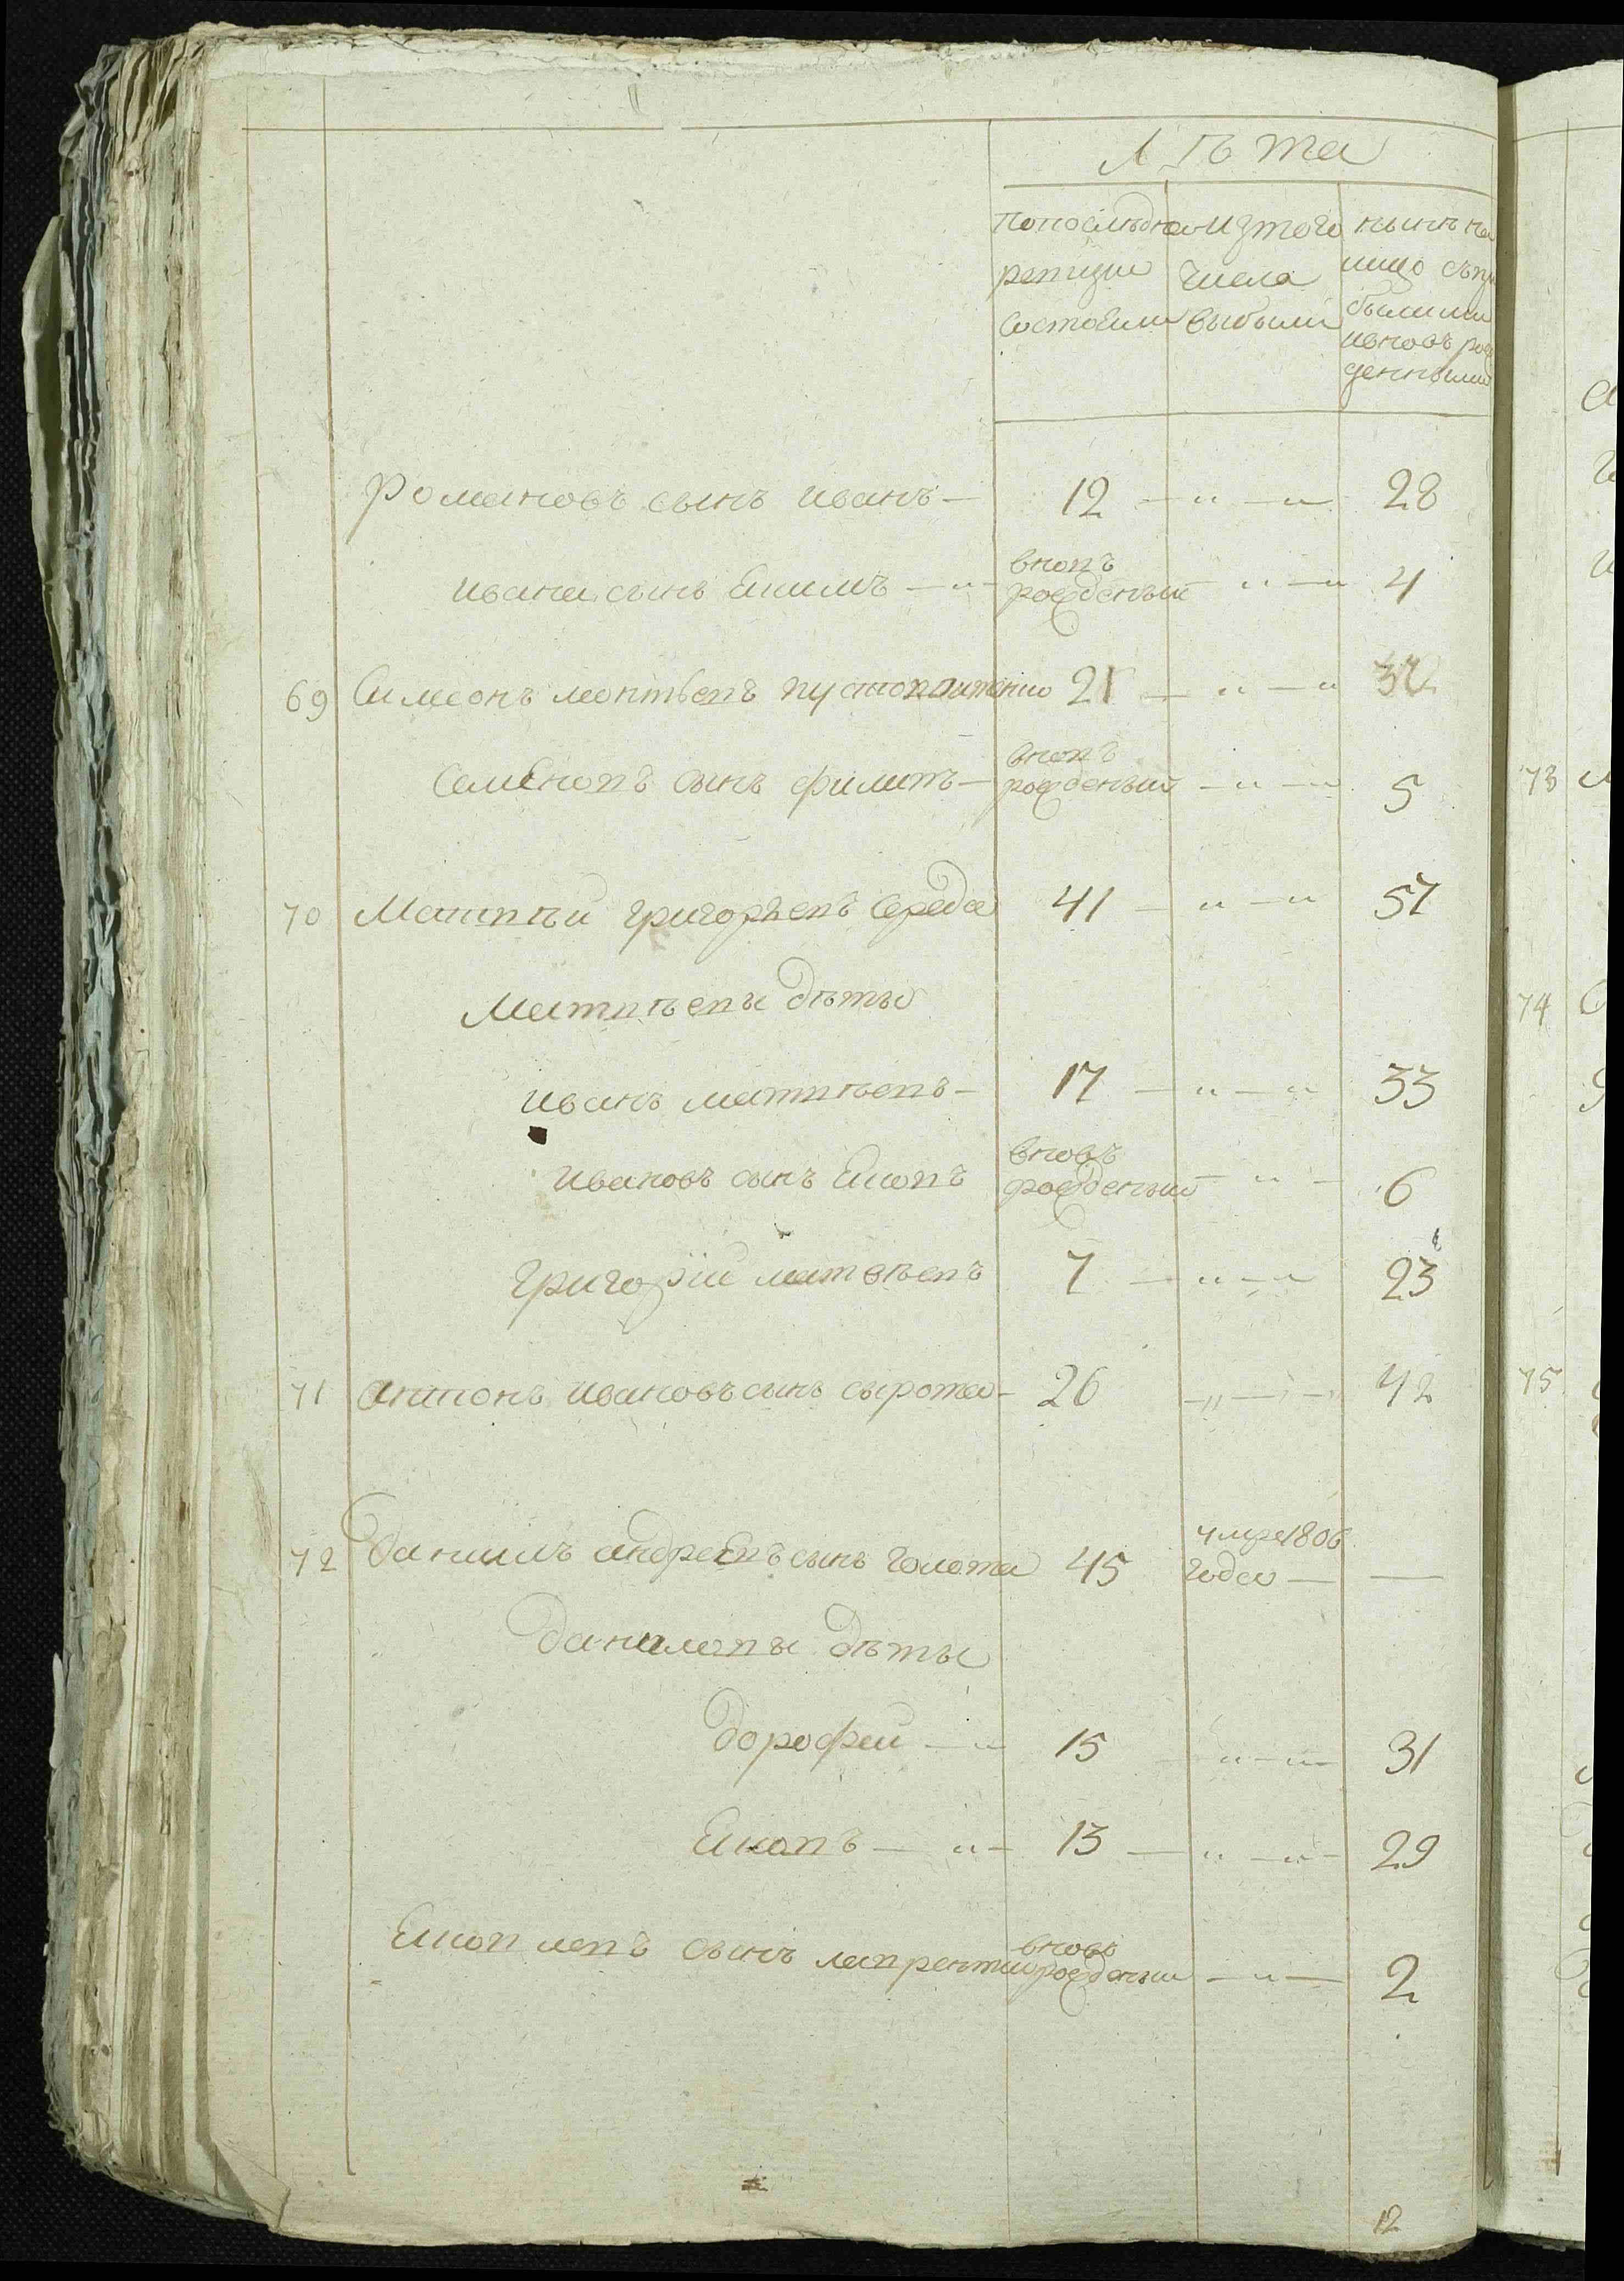 Лѣта
попоследне
ревизии
состоели
изтого
числа
выбыли
нынѣ на
лицо съпри
былыми
ивновь рож
денными
Романовъ сынъ иванъ — 12 — " — " — 28
ивана сынъ Екимъ — " — вновъ рожденъий — " — " 4
69 Симеонъ монтвеевъ 21 — " — "
Семеновъ сынъ филипъ — вновъ рожденъий — " — " 5
70 Матвѣй григорьевъ Середа 41 — " — " 57
Матвѣевы дѣты
иванъ матвѣевъ — 17 — " — " 33
ивановъ сынъ Ековъ вновъ рожденъий — " — 6
григорiй матвѣевъ 7 — " — " 23
71 антонъ ивановъ сынъ сырота — 26 — " — " 42
72 данилъ андреевъ сынъ голота 45 умре 1806 года — —
даниловы дѣты
дорофей — " 15 — " — " — 31
Ековъ — " — 13 — " — " — 29
Яковлевъ сынъ лаврентий вновь рожденъий — " — 2
12
73
74
75